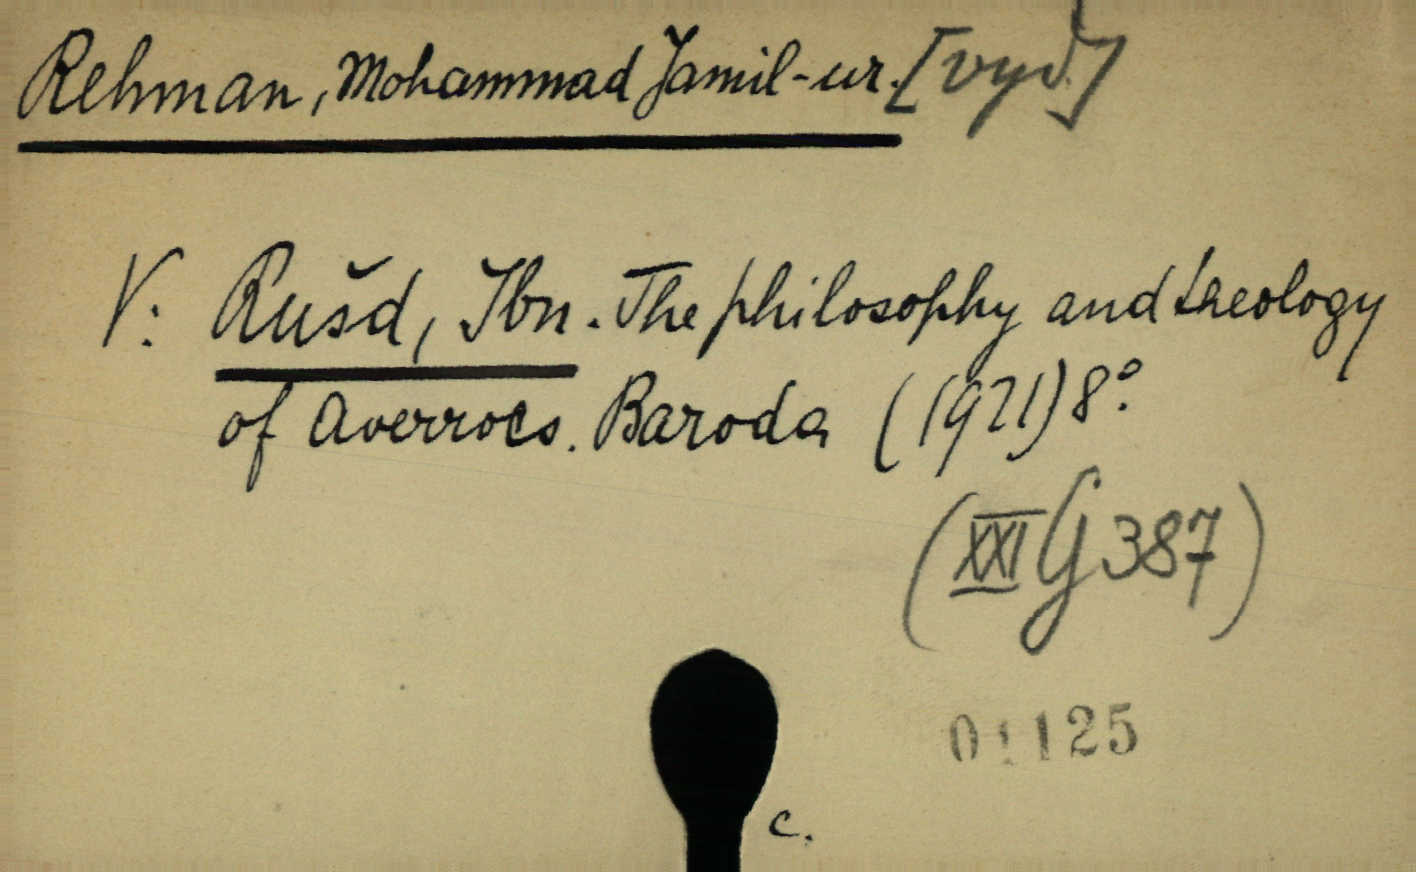 Rehman, Mohammad Jamil-ur. [vyd.]
V: Rušd, Ibn. The philosophy and theology
of Averroes. Baroda (1921) 8°.
(XXI G 387)
01125
c.